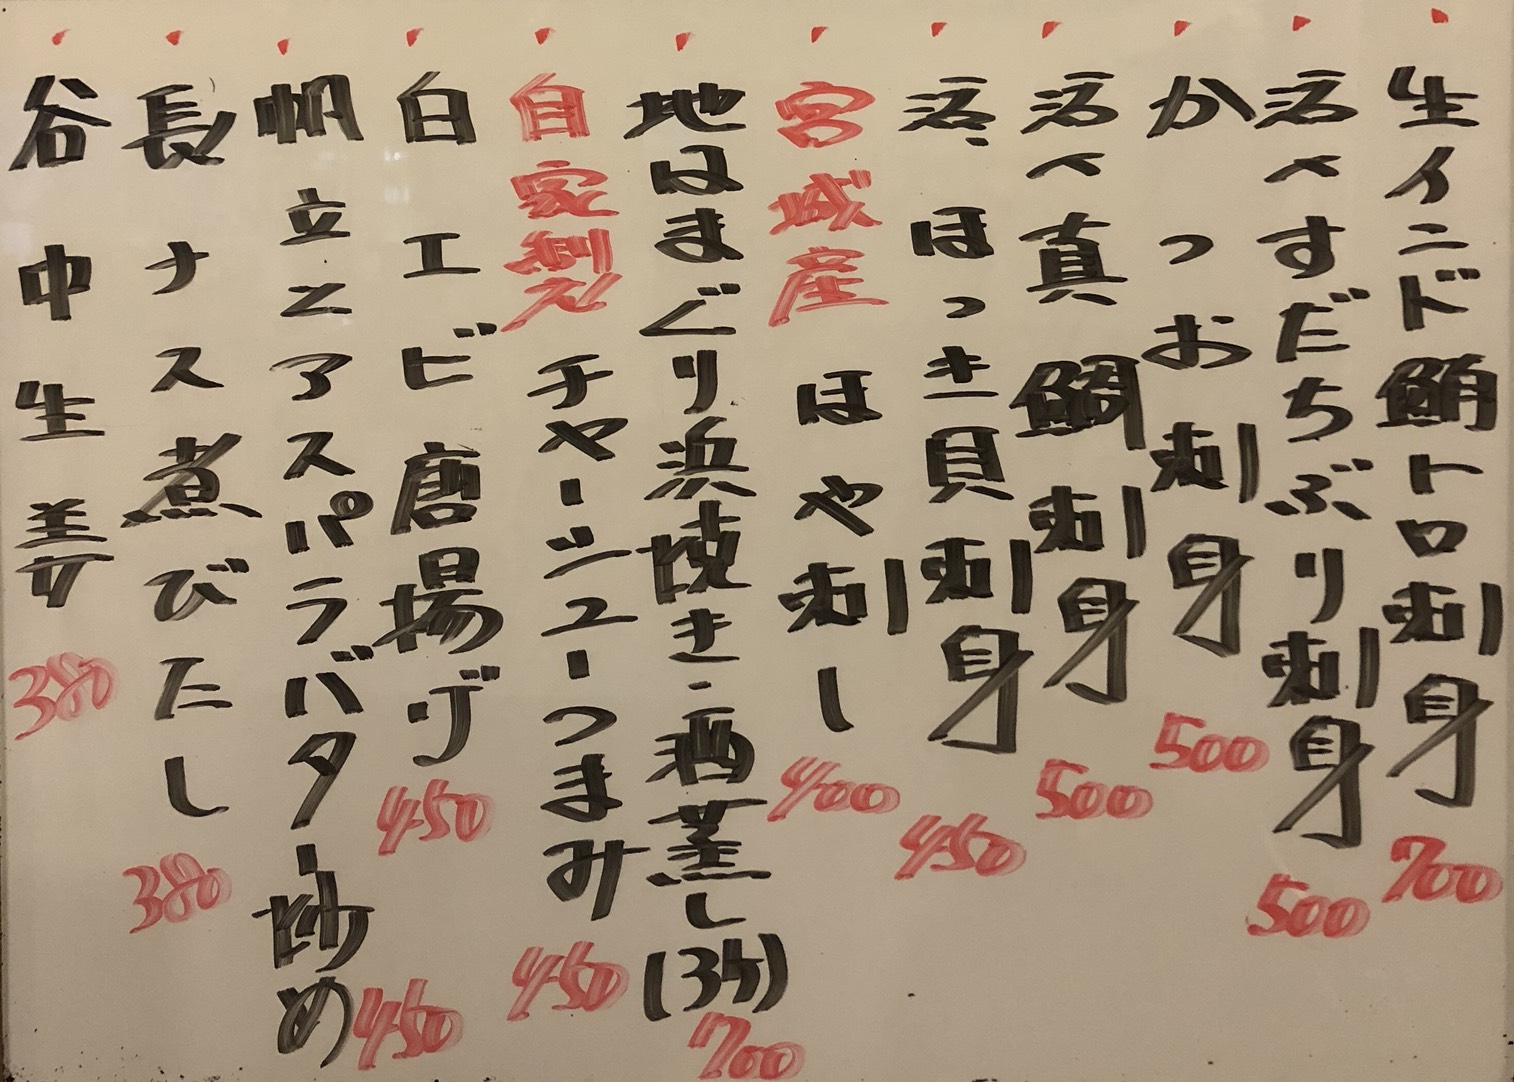 生インド鮪トロ刺身 700
活〆すだちぶり刺身 500
かつお刺身 500
活〆真鯛刺身 500
活ほっき貝刺身 450
宮城産 ほや刺し 400
地はまぐり浜焼き・酒蒸し(3ケ) 700
自家製 チャーシューつまみ 450
白エビ唐揚げ 450
帆立とアスパラバター炒め 450
長ナス煮びたし 380
谷中生姜 380